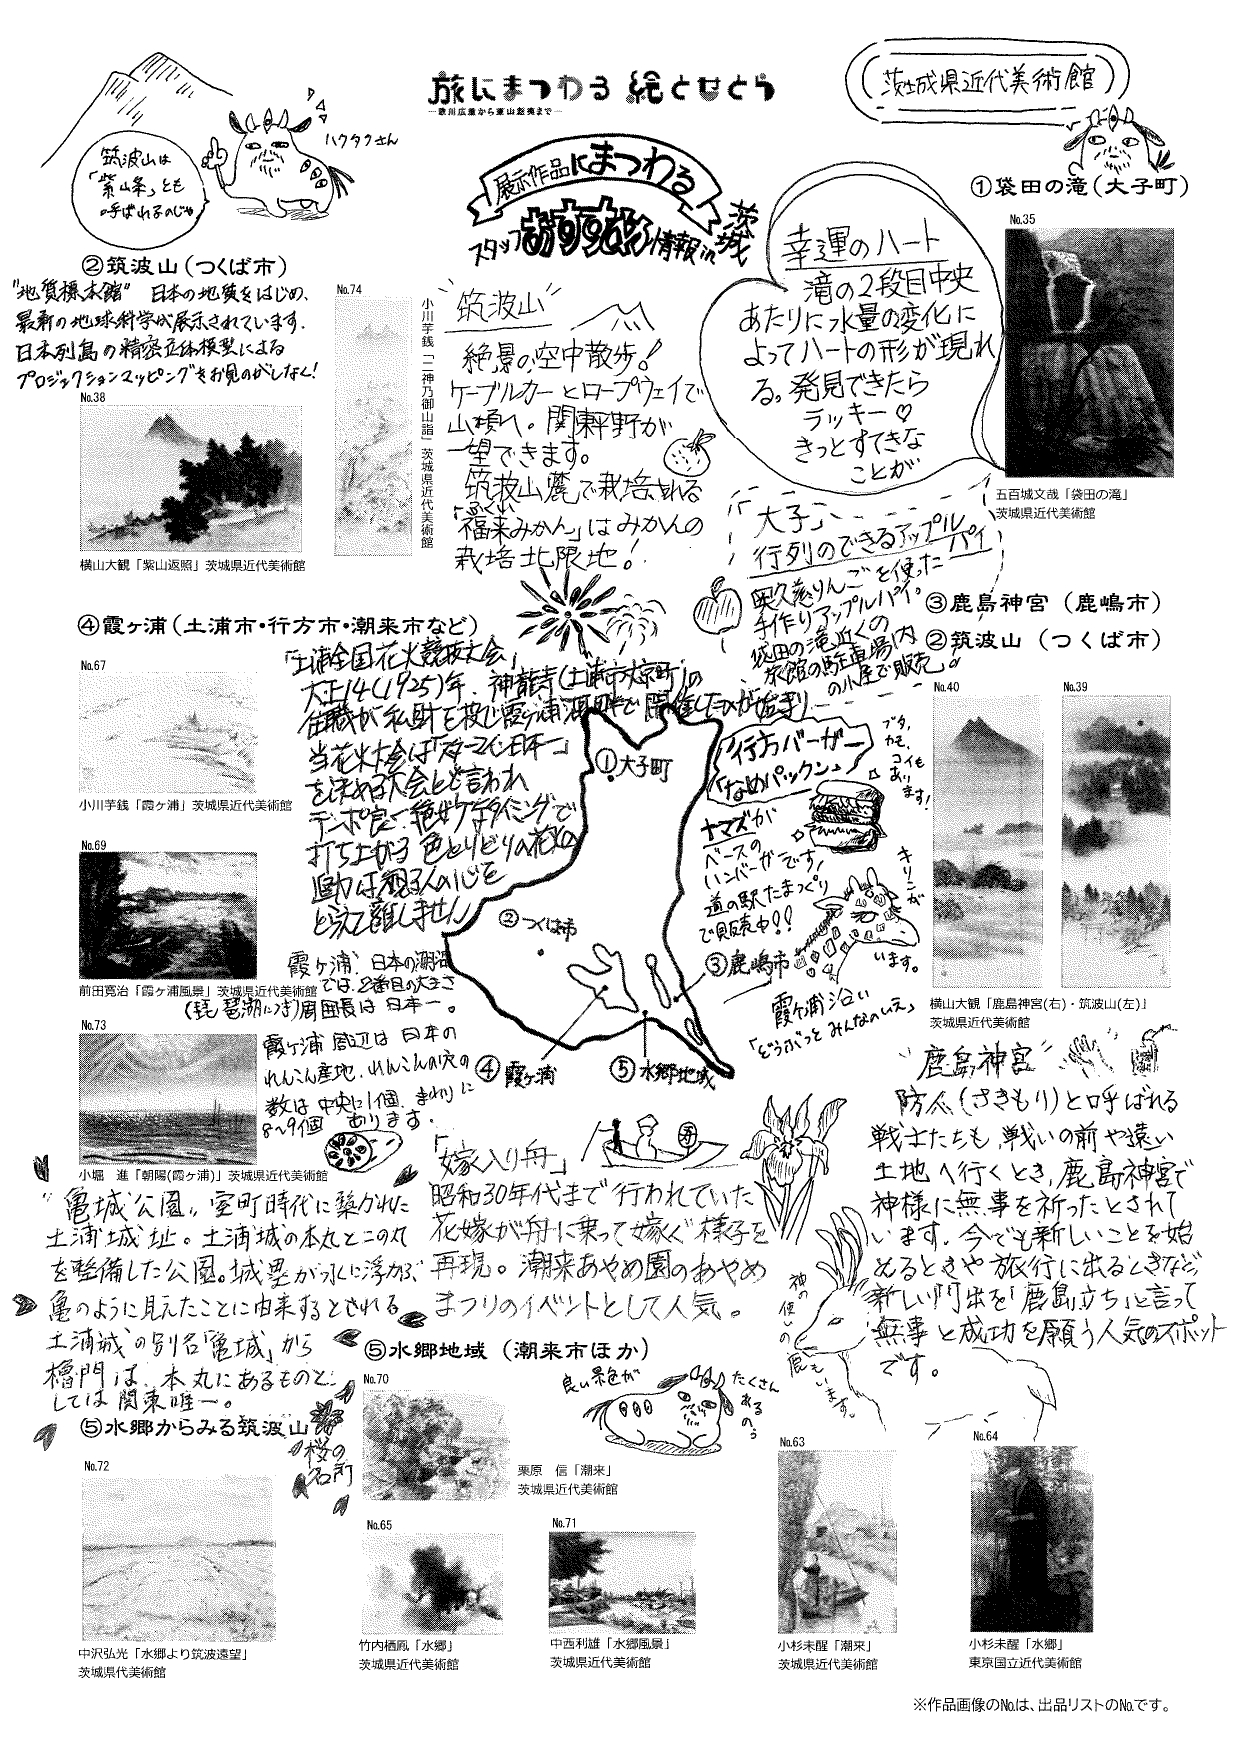 旅にまつわる 絵とせとら
―歌川広重から東山魁夷まで―
茨城県近代美術館
ハクタクさん
筑波山は
「紫峰」とも
呼ばれるのじゃ
展示作品にまつわる
スタッフおすすめ情報in茨城
①袋田の滝(大子町)
No.35
五百城文哉「袋田の滝」
茨城県近代美術館
幸運のハート
滝の2段目中央
あたりに水量の変化に
よってハートの形が現れ
る。発見できたら
ラッキー♡
きっとすてきな
ことが
②筑波山(つくば市)
"地質標本館" 日本の地質をはじめ、
最新の地球科学が展示されています。
日本列島の精密立体模型による
プロジェクションマッピングをお見のがしなく!
No.38
横山大観「紫山返照」茨城県近代美術館
No.74
小川芋銭「二神乃御山詣」茨城県近代美術館
"筑波山"
絶景の空中散歩!
ケーブルカーとロープウェイで
山頂へ。関東平野が
一望できます。
筑波山麓で栽培される
「福来みかん」はみかんの
ふくれ
栽培北限地!
「大子」
行列のできるアップルパイ
奥久慈りんごを使った
手作りアップルパイ。
袋田の滝近くの
旅館の駐車場内
の小屋で販売。
③鹿島神宮(鹿嶋市)
②筑波山(つくば市)
No.40
No.39
横山大観「鹿島神宮(右)・筑波山(左)」
茨城県近代美術館
④霞ヶ浦(土浦市・行方市・潮来市など)
No.67
小川芋銭「霞ヶ浦」茨城県近代美術館
「土浦全国花火競技大会」
大正14(1925)年、神龍寺(土浦市文京町)の
住職が私財を投じ霞ヶ浦湖畔で開催したのが始まり
当花火大会は「スターマイン日本一」
を決める大会とも言われ
テンポ良く絶妙なタイミングで
打ち上がる色とりどりの花火の
迫力は観る人の心を
とらえて離しません
No.69
前田寛治「霞ヶ浦風景」茨城県近代美術館
霞ヶ浦 日本の湖沼
では、2番目の大きさ
(琵琶湖につぎ)周囲長は日本一。
No.73
小堀 進「朝陽(霞ヶ浦)」茨城県近代美術館
霞ヶ浦周辺は日本の
れんこん産地。れんこんの穴の
数は中央に1個、まわりに
8〜9個 あります。
①大子町
②つくば市
③鹿嶋市
④霞ヶ浦
⑤水郷地域
「行方バーガー
「なめパックン」
ブタ、
カモ、
コイも
あります!
ナマズが
ベースの
ハンバーガーです!
道の駅たまつくり
で販売中!!
キリンが
います。
霞ヶ浦沿い
「どうぶつとみんなのいえ」
"鹿島神宮"
防人(さきもり)と呼ばれる
戦士たちも、戦いの前や遠い
土地へ行くとき、鹿島神宮で
神様に無事を祈ったとされて
います。今でも新しいことを始
めるときや旅行に出るときなど
新しい門出を「鹿島立ち」と言って
無事と成功を願う人気のスポット
です。
神の使いの
鹿も
います。
「嫁入り舟」
昭和30年代まで行われていた
花嫁が舟に乗って嫁ぐ様子を
再現。潮来あやめ園のあやめ
まつりのイベントとして人気。
寿
"亀城公園" 室町時代に築かれた
土浦城址。土浦城の本丸と二の丸
を整備した公園。城塁が水に浮かぶ
亀のように見えたことに由来するとされる
土浦城の別名「亀城」から
櫓門は、本丸にあるものと
しては関東唯一。
桜の
名所
⑤水郷地域(潮来市ほか)
No.70
栗原 信「潮来」
茨城県近代美術館
良い景色が
たくさん
あるのう
⑤水郷からみる筑波山
No.72
中沢弘光「水郷より筑波遠望」
茨城県代美術館
No.65
竹内栖鳳「水郷」
茨城県近代美術館
No.71
中西利雄「水郷風景」
茨城県近代美術館
No.63
小杉未醒「潮来」
茨城県近代美術館
No.64
小杉未醒「水郷」
東京国立近代美術館
※作品画像のNo.は、出品リストのNo.です。